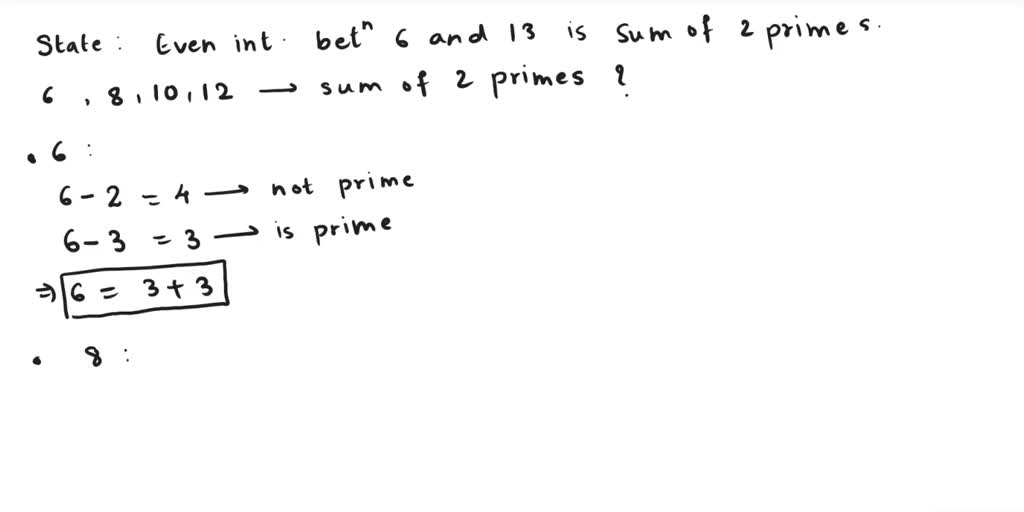 State : Even int. betⁿ 6 and 13 is sum of 2 primes.
6 , 8, 10, 12 → sum of 2 primes ?
• 6 :
6 - 2 = 4 → not prime
6 - 3 = 3 → is prime
⇒ 6 = 3 + 3
• 8 :